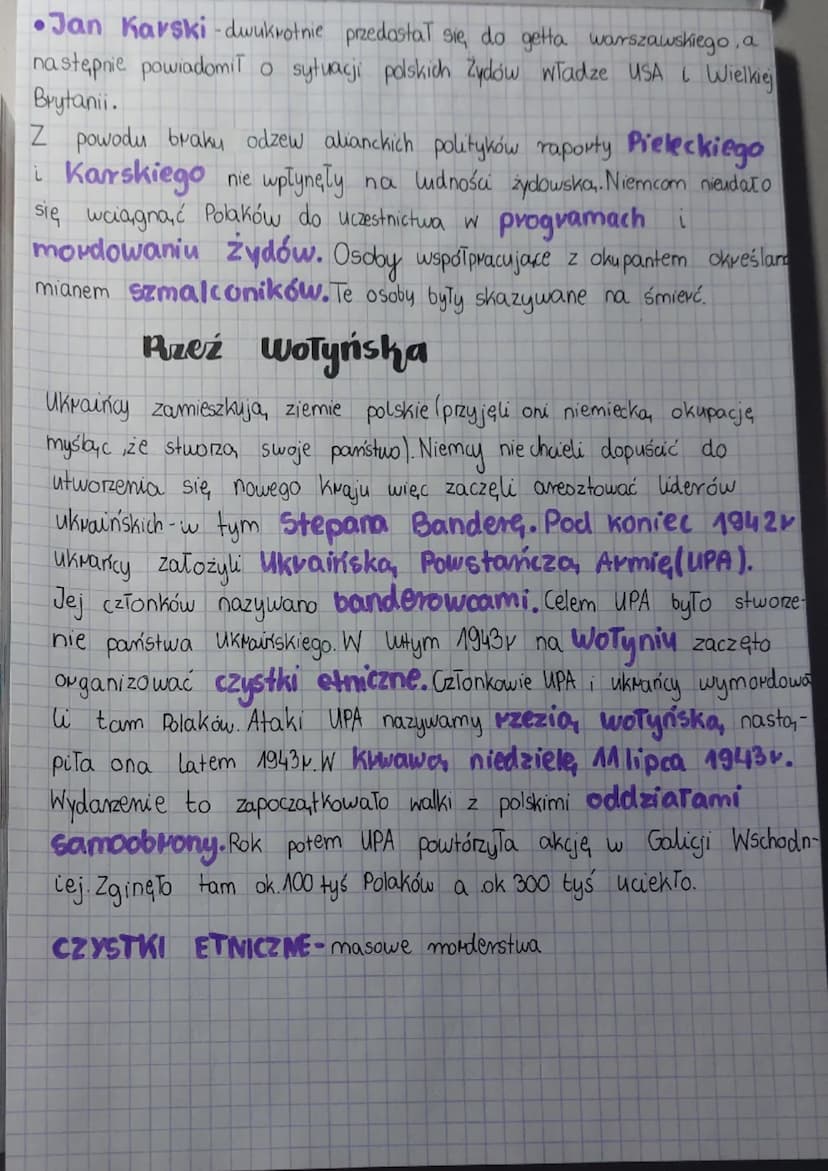 •Jan Karski - dwukrotnie przedostał się do getta warszawskiego, a
następnie powiadomił o sytuacji polskich Żydów władze USA i Wielkiej
Brytanii.
Z powodu braku odzew alianckich polityków raporty Pileckiego
i Karskiego nie wpłynęły na ludności żydowską. Niemcom nieudało
się wciągnąć Polaków do uczestnictwa w programach i
mordowaniu Żydów. Osoby współpracujące z okupantem określano
mianem szmalconików. Te osoby były skazywane na śmierć.
Rzeź Wołyńska
Ukraińcy zamieszkują ziemie polskie (przyjęli oni niemiecką okupację
myśląc, że stworzą swoje państwo). Niemcy nie chcieli dopuścić do
utworzenia się nowego kraju więc zaczęli aresztować liderów
ukraińskich - w tym Stepana Banderę. Pod koniec 1942r
ukraińcy założyli Ukraińską Powstańczą Armię (UPA).
Jej członków nazywano banderowcami. Celem UPA było stworze-
nie państwa Ukraińskiego. W lutym 1943r na Wołyniu zaczęto
organizować czystki etniczne. Członkowie UPA i ukraińcy wymordowa
li tam Polaków. Ataki UPA nazywamy rzezią wołyńską, nastą-
piła ona latem 1943r. W Krwawą niedzielę 11 lipca 1943r.
Wydarzenie to zapoczątkowało walki z polskimi oddziałami
samoobrony. Rok potem UPA powtórzyła akcję w Galicji Wschodn-
iej. Zginęło tam ok. 100 tyś Polaków a ok 300 tyś uciekło.
CZYSTKI ETNICZNE - masowe morderstwa